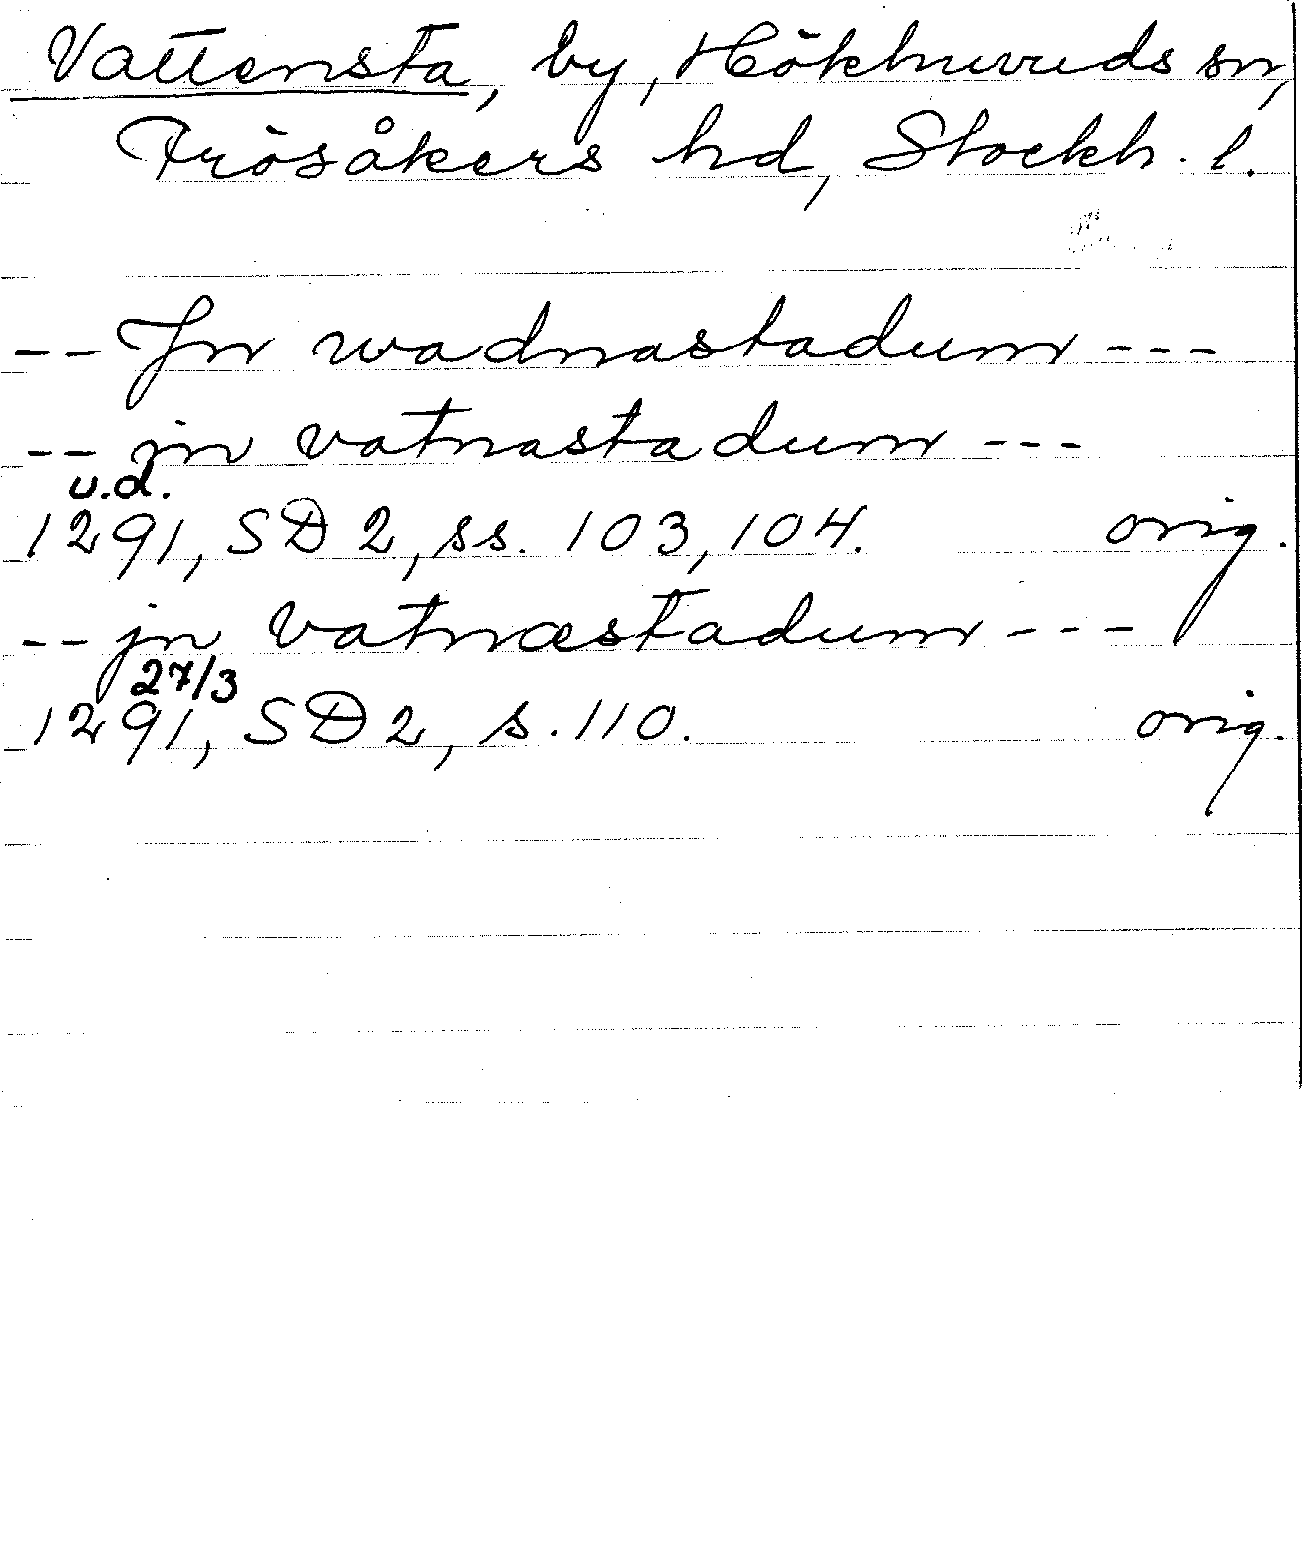 Vattensta, by, Hökhuvuds sn,
Frösåkers hd, Stockh. l.
-- Jn wadnastadum ---
-- jn vatnastadum ---
u.d.
1291, SD 2, ss. 103, 104. orig.
-- jn vatnæstadum ---
27/3
1291, SD 2, s. 110. orig.